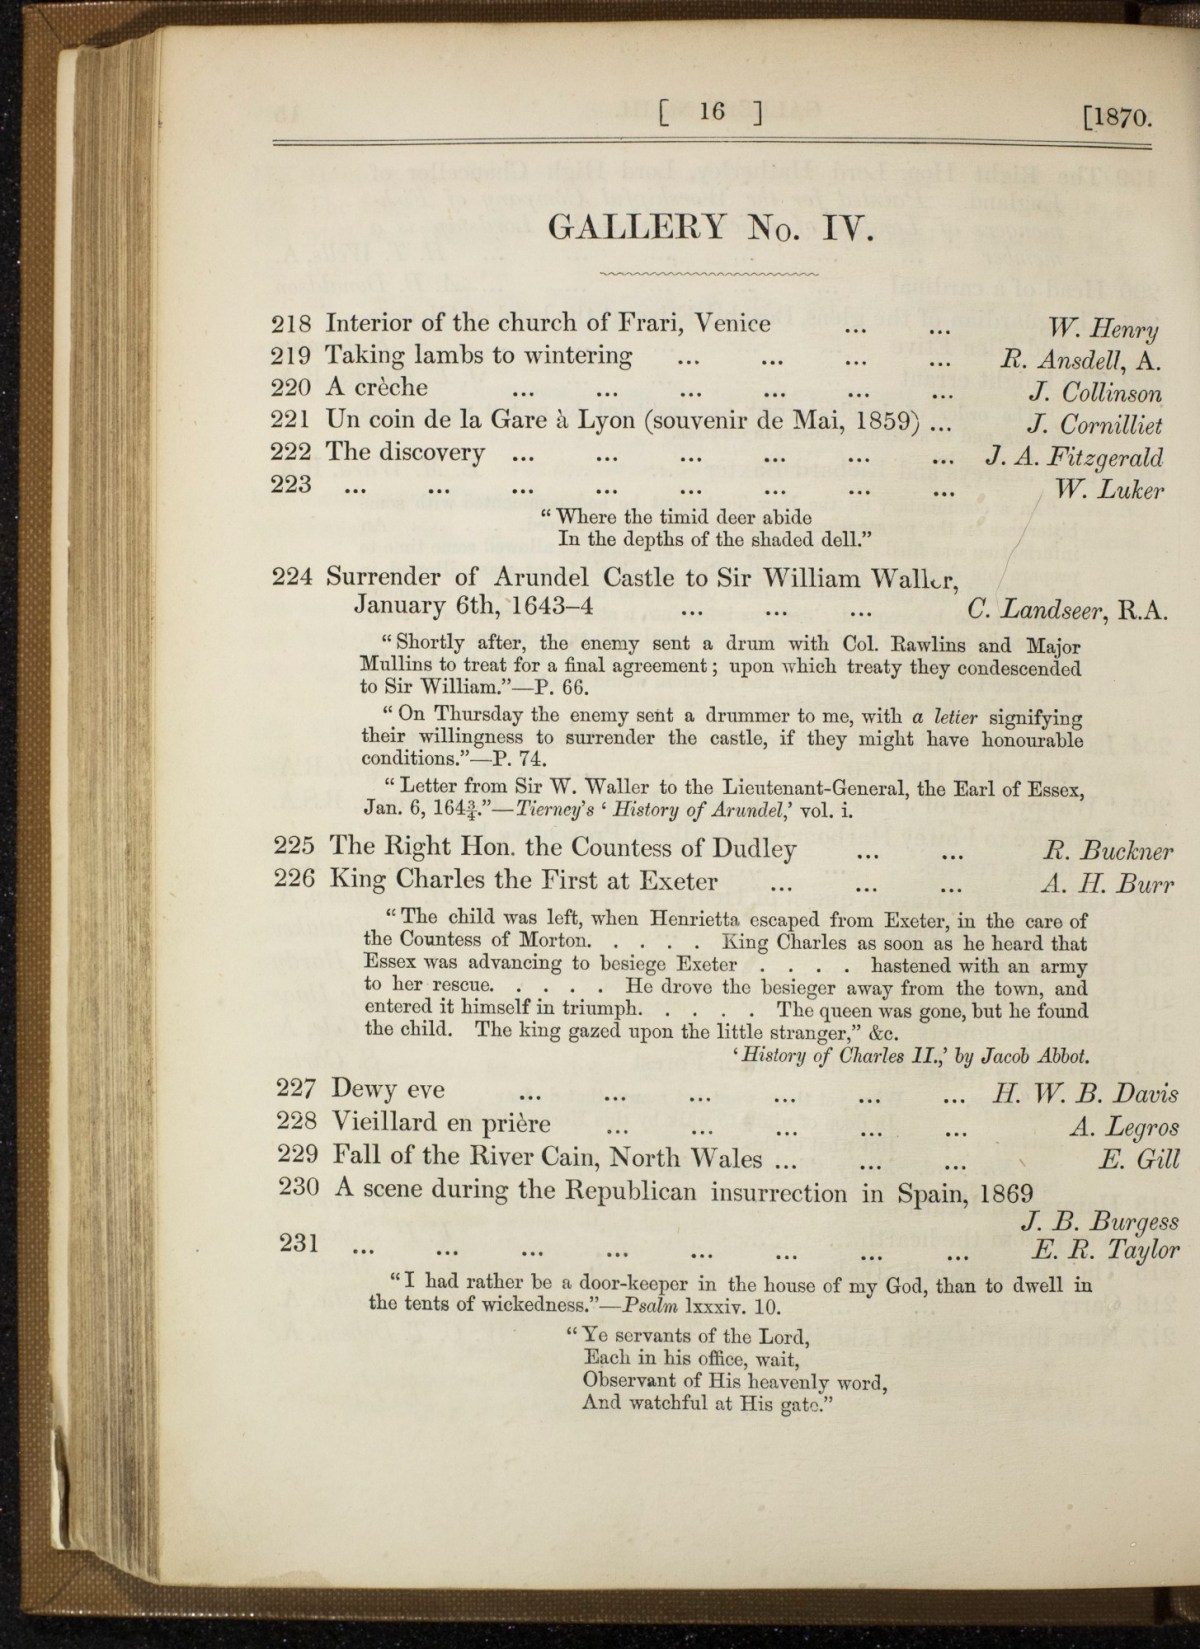 [ 16 ] [1870.
GALLERY No. IV.
218 Interior of the church of Frari, Venice ... ... W. Henry
219 Taking lambs to wintering ... ... ... ... R. Ansdell, A.
220 A crèche ... ... ... ... ... ... J. Collinson
221 Un coin de la Gare à Lyon (souvenir de Mai, 1859) ... J. Cornilliet
222 The discovery ... ... ... ... ... ... J. A. Fitzgerald
223 ... ... ... ... ... ... ... ... W. Luker
“Where the timid deer abide
In the depths of the shaded dell.”
224 Surrender of Arundel Castle to Sir William Waller,
January 6th, 1643–4 ... ... ... C. Landseer, R.A.
“Shortly after, the enemy sent a drum with Col. Rawlins and Major
Mullins to treat for a final agreement; upon which treaty they condescended
to Sir William.”—P. 66.
“On Thursday the enemy sent a drummer to me, with a letier signifying
their willingness to surrender the castle, if they might have honourable
conditions.”—P. 74.
“Letter from Sir W. Waller to the Lieutenant-General, the Earl of Essex,
Jan. 6, 164¾.”—Tierney’s ‘History of Arundel,’ vol. i.
225 The Right Hon. the Countess of Dudley ... ... R. Buckner
226 King Charles the First at Exeter ... ... ... A. H. Burr
“The child was left, when Henrietta escaped from Exeter, in the care of
the Countess of Morton. . . . . King Charles as soon as he heard that
Essex was advancing to besiege Exeter . . . . hastened with an army
to her rescue. . . . . He drove the besieger away from the town, and
entered it himself in triumph. . . . . The queen was gone, but he found
the child. The king gazed upon the little stranger,” &c.
‘History of Charles II.,’ by Jacob Abbot.
227 Dewy eve ... ... ... ... ... ... H. W. B. Davis
228 Vieillard en prière ... ... ... ... ... A. Legros
229 Fall of the River Cain, North Wales ... ... ... E. Gill
230 A scene during the Republican insurrection in Spain, 1869
J. B. Burgess
231 ... ... ... ... ... ... ... ... E. R. Taylor
“I had rather be a door-keeper in the house of my God, than to dwell in
the tents of wickedness.”—Psalm lxxxiv. 10.
“Ye servants of the Lord,
Each in his office, wait,
Observant of His heavenly word,
And watchful at His gate.”